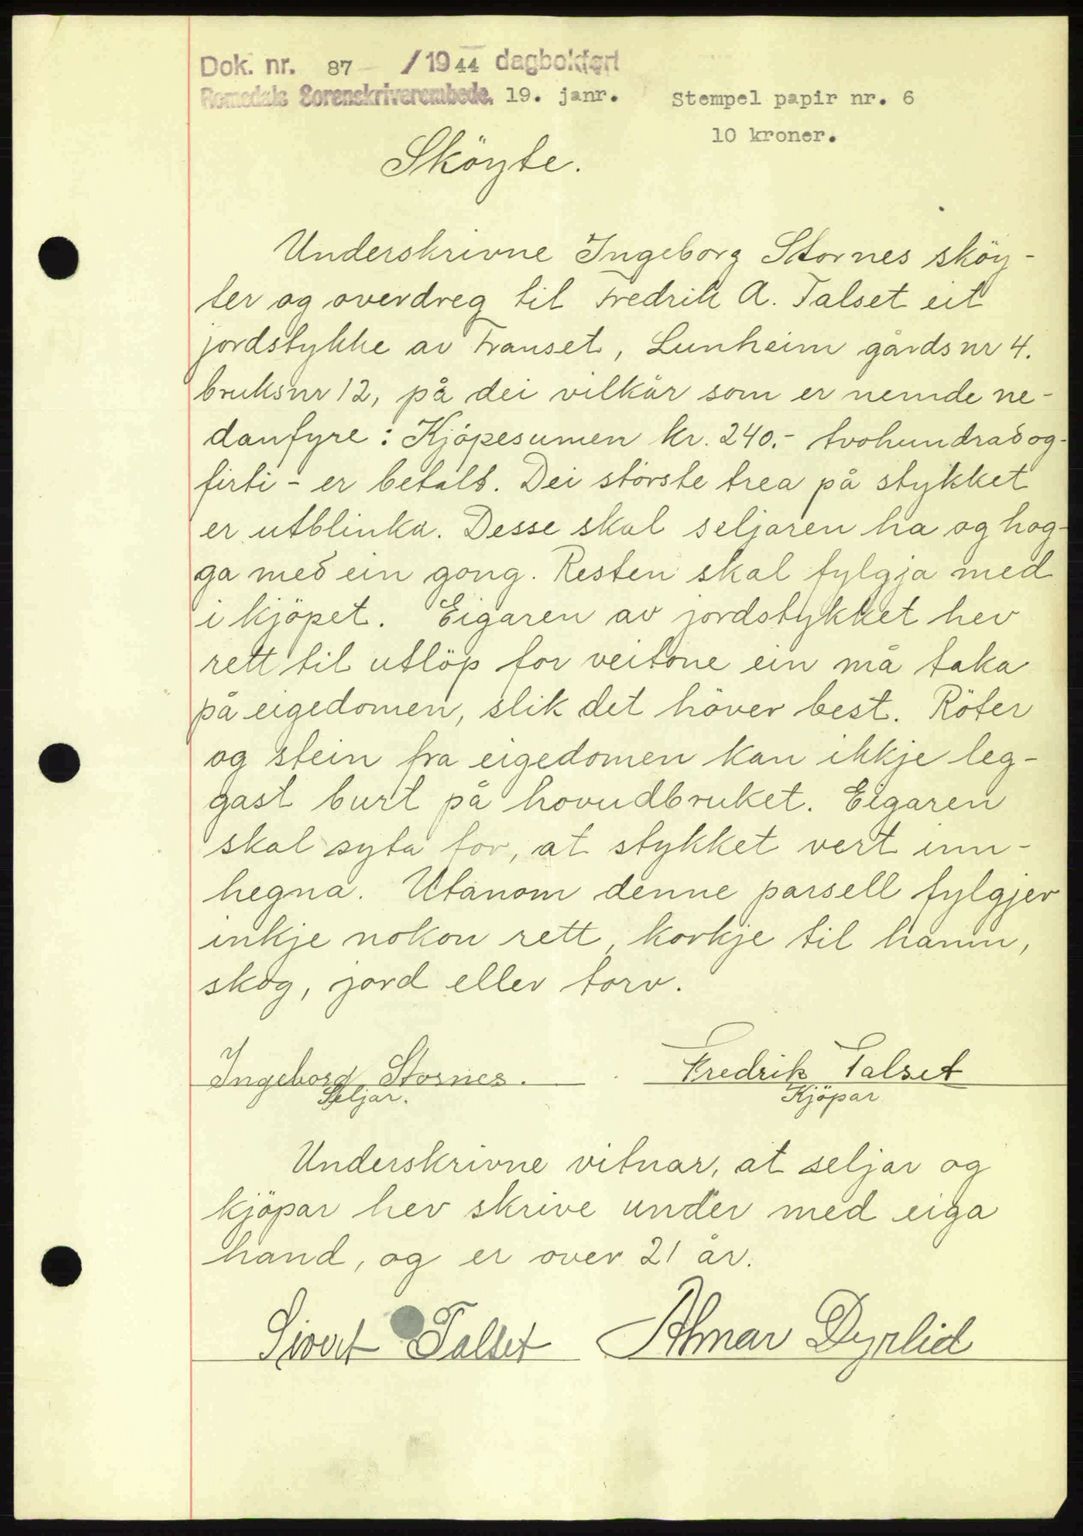 Dok. nr. 87 /1944 dagbokført
Romsdals Sorenskriverembede. 19. janr. Stempel papir nr. 6
10 kroner.
Sköyte.
Underskrivne Ingeborg Stornes sköy-
ter og overdreg til Fredrik A. Talset eit
jordstykke av Franset, Lunheim gårdsnr 4.
bruksnr 12, på dei vilkår som er nemde ne-
danfyre: Kjöpesumen kr. 240.- tvohundradog-
firti - er betalt. Dei störste trea på stykket
er utblinka. Desse skal seljaren ha og hog-
ga med ein gong. Resten skal fylgja med
i kjöpet. Eigaren av jordstykket hev
rett til utlöp for veitone ein må taka
på eigedomen, slik det höver best. Röter
og stein fra eigedomen kan ikkje leg-
gast burt på hovudbruket. Eigaren
skal syta for, at stykket vert inn-
hegna. Utanom denne parsell fylgjer
inkje nokon rett, korkje til hamn,
skog, jord eller torv.
Ingeborg Stornes. Fredrik Talset
Seljar. Kjöpar
Underskrivne vitnar, at seljar og
kjöpar hev skrive under med eiga
hand, og er over 21 år.
Sivert Talset Almar Dyrlid